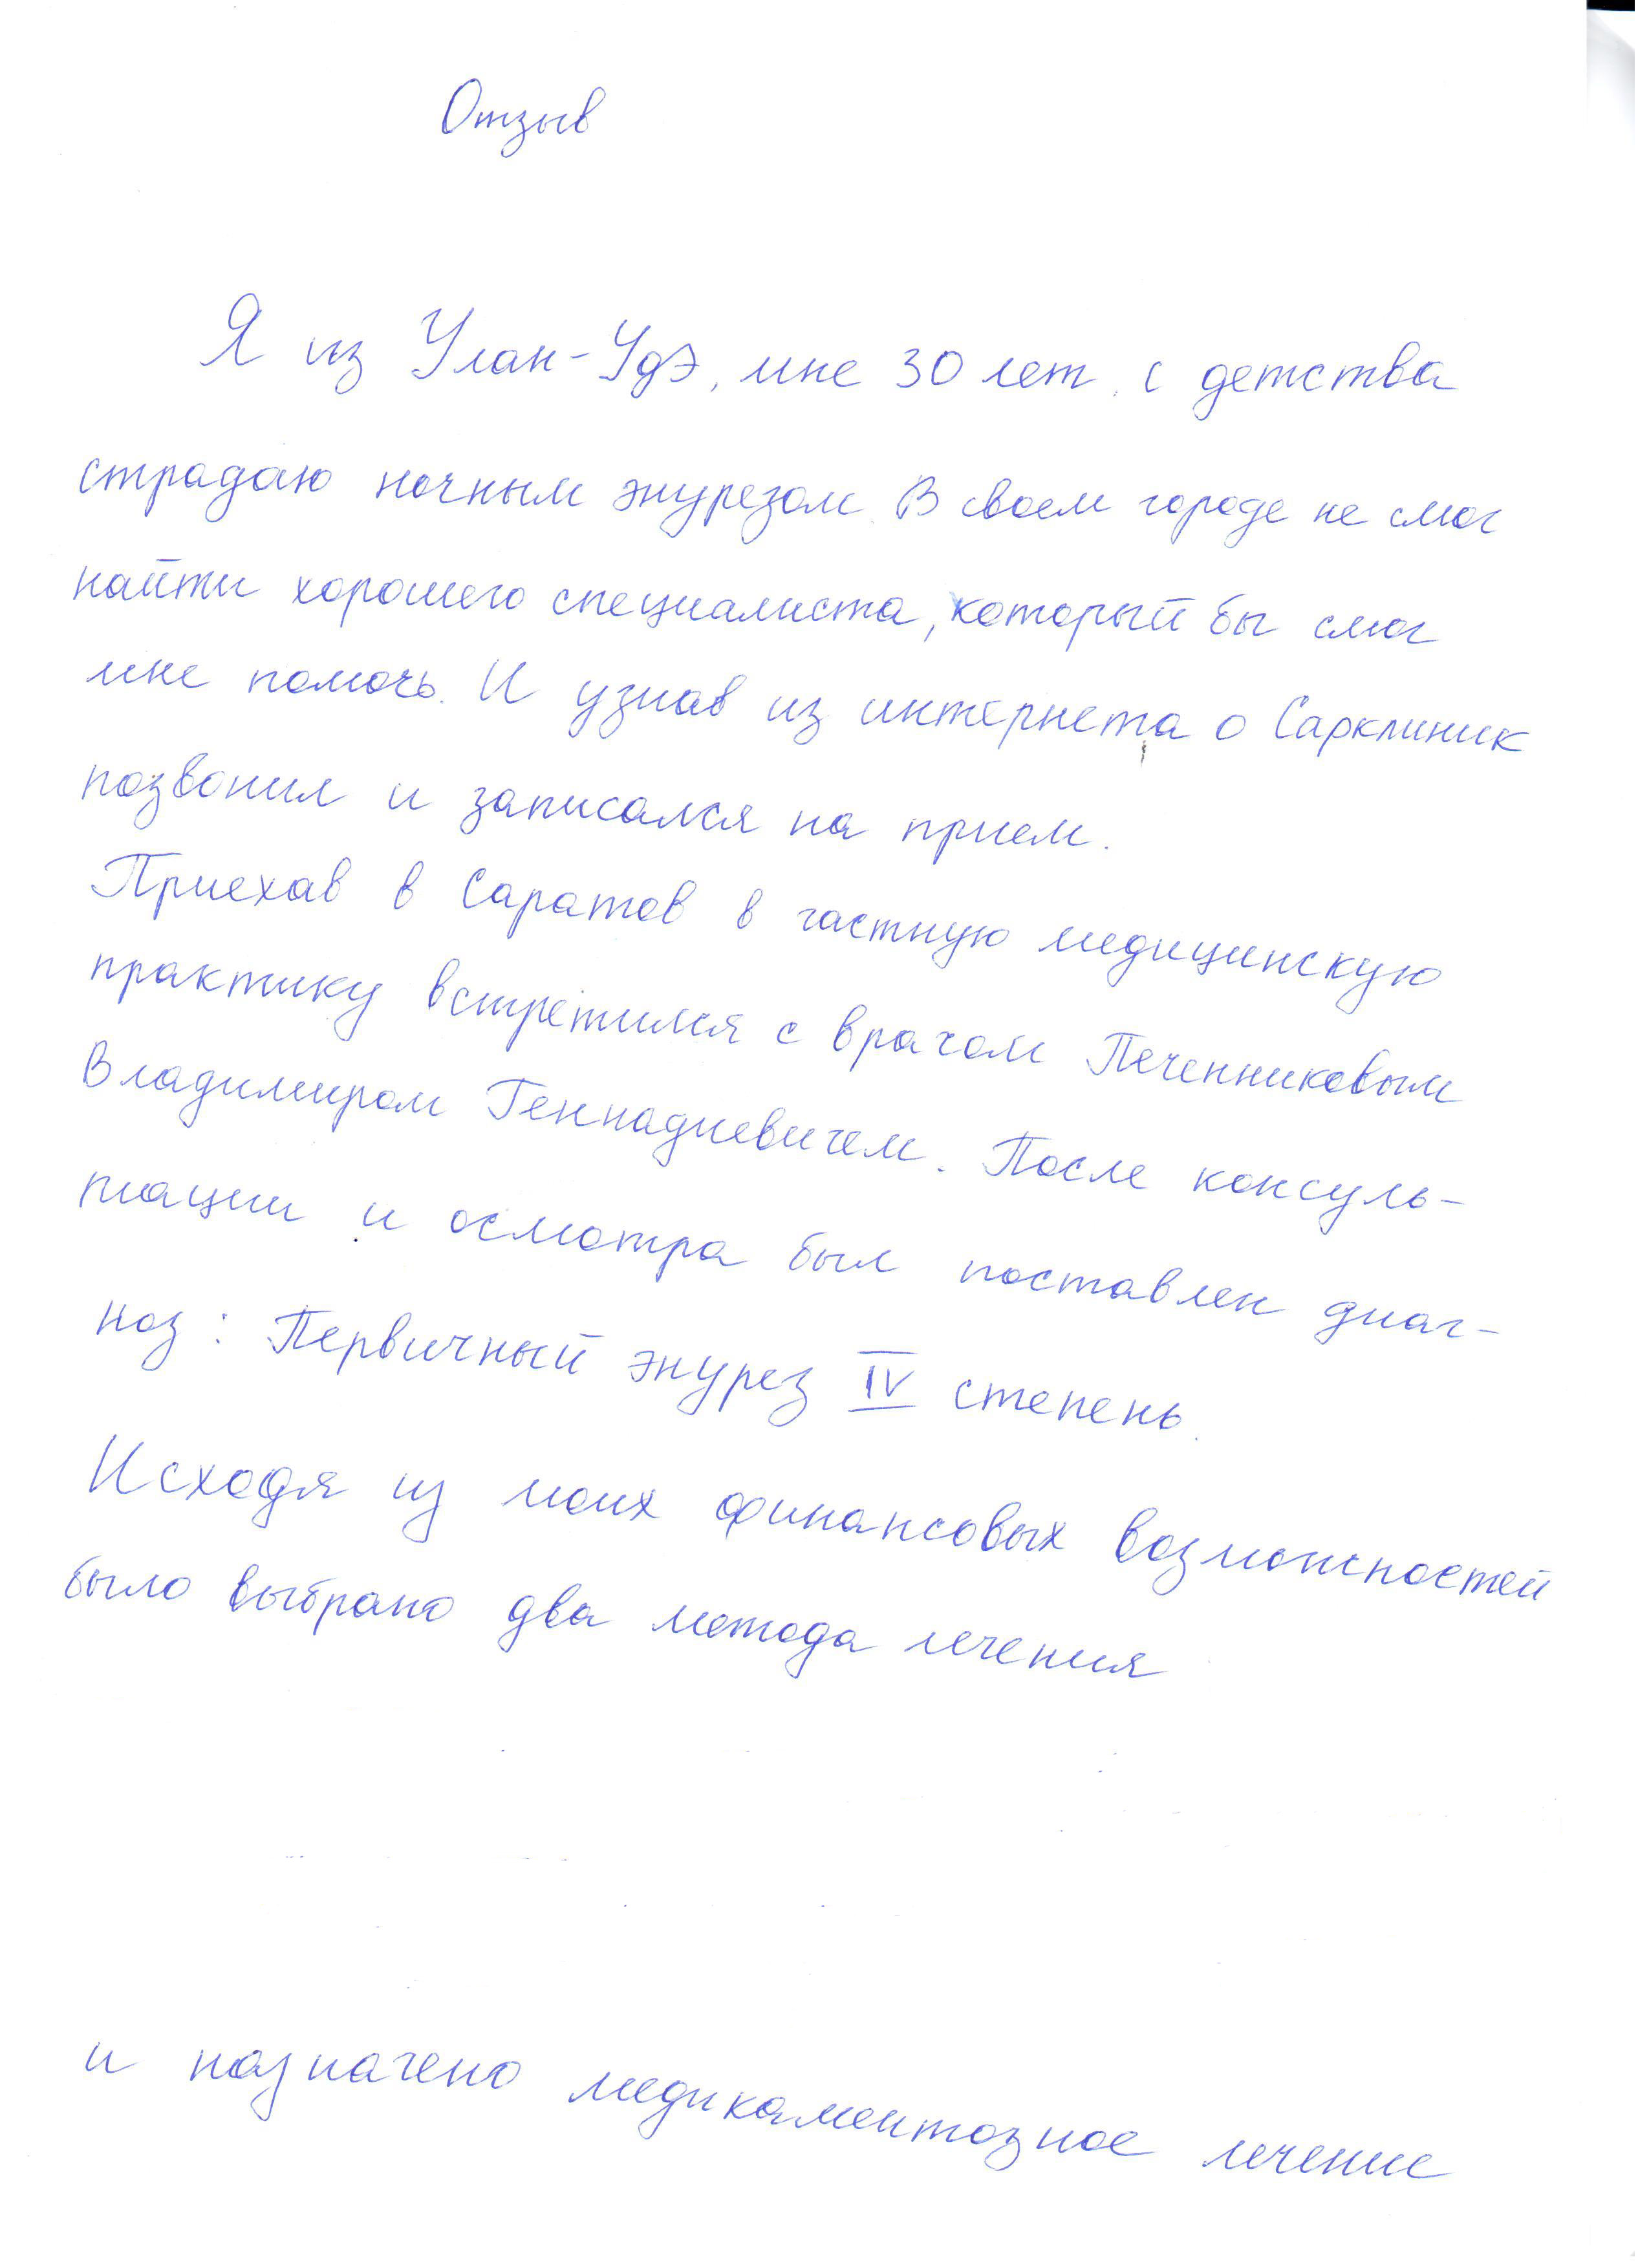 Отзыв
Я из Улан-Удэ, мне 30 лет, с детства
страдаю ночным энурезом. В своем городе не смог
найти хорошего специалиста, который бы смог
мне помочь. И узнав из интернета о Сарклиник
позвонил и записался на прием.
Приехав в Саратов в частную медицинскую
практику встретился с врачом Печенниковым
Владимиром Геннадиевичем. После консуль-
тации и осмотра был поставлен диаг-
ноз: Первичный энурез IV степень.
Исходя из моих финансовых возможностей
было выбрано два метода лечения
и назначено медикаментозное лечение